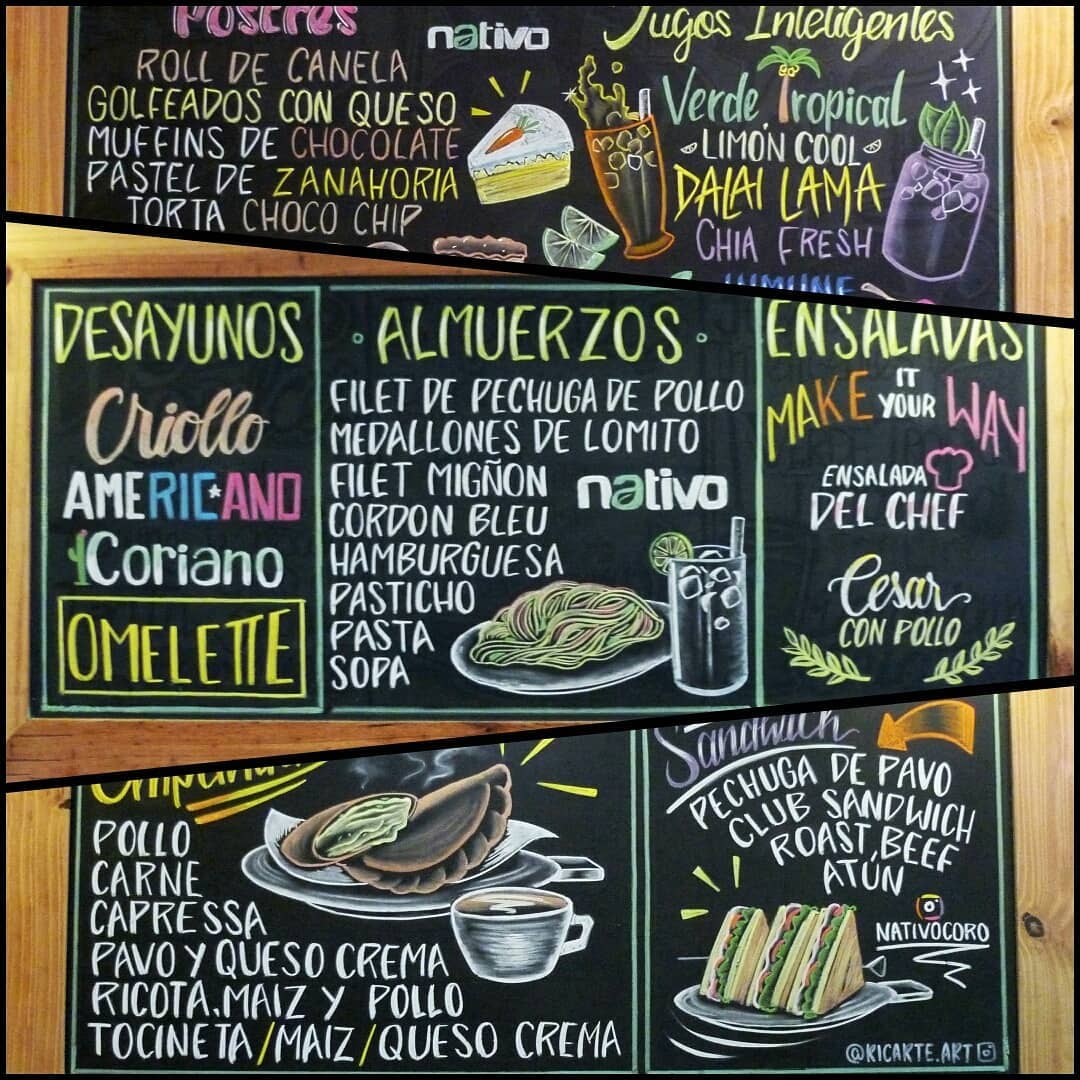 Postres
nativo
ROLL DE CANELA
GOLFEADOS CON QUESO
MUFFINS DE CHOCOLATE
PASTEL DE ZANAHORIA
TORTA CHOCO CHIP
Jugos Inteligentes
Verde Tropical
LIMÓN COOL
DALAI LAMA
CHIA FRESH
INMUNE
DESAYUNOS
Criollo
AMERIC*ANO
Coriano
OMELETTE
ALMUERZOS
FILET DE PECHUGA DE POLLO
MEDALLONES DE LOMITO
FILET MIGÑON
CORDON BLEU
HAMBURGUESA
PASTICHO
PASTA
SOPA
nativo
ENSALADAS
MAKE IT YOUR WAY
ENSALADA
DEL CHEF
Cesar
CON POLLO
POLLO
CARNE
CAPRESSA
PAVO Y QUESO CREMA
RICOTA, MAIZ Y POLLO
TOCINETA/MAIZ/QUESO CREMA
Sandwich
PECHUGA DE PAVO
CLUB SANDWICH
ROAST BEEF
ATÚN
NATIVOCORO
@RICARTE.ART